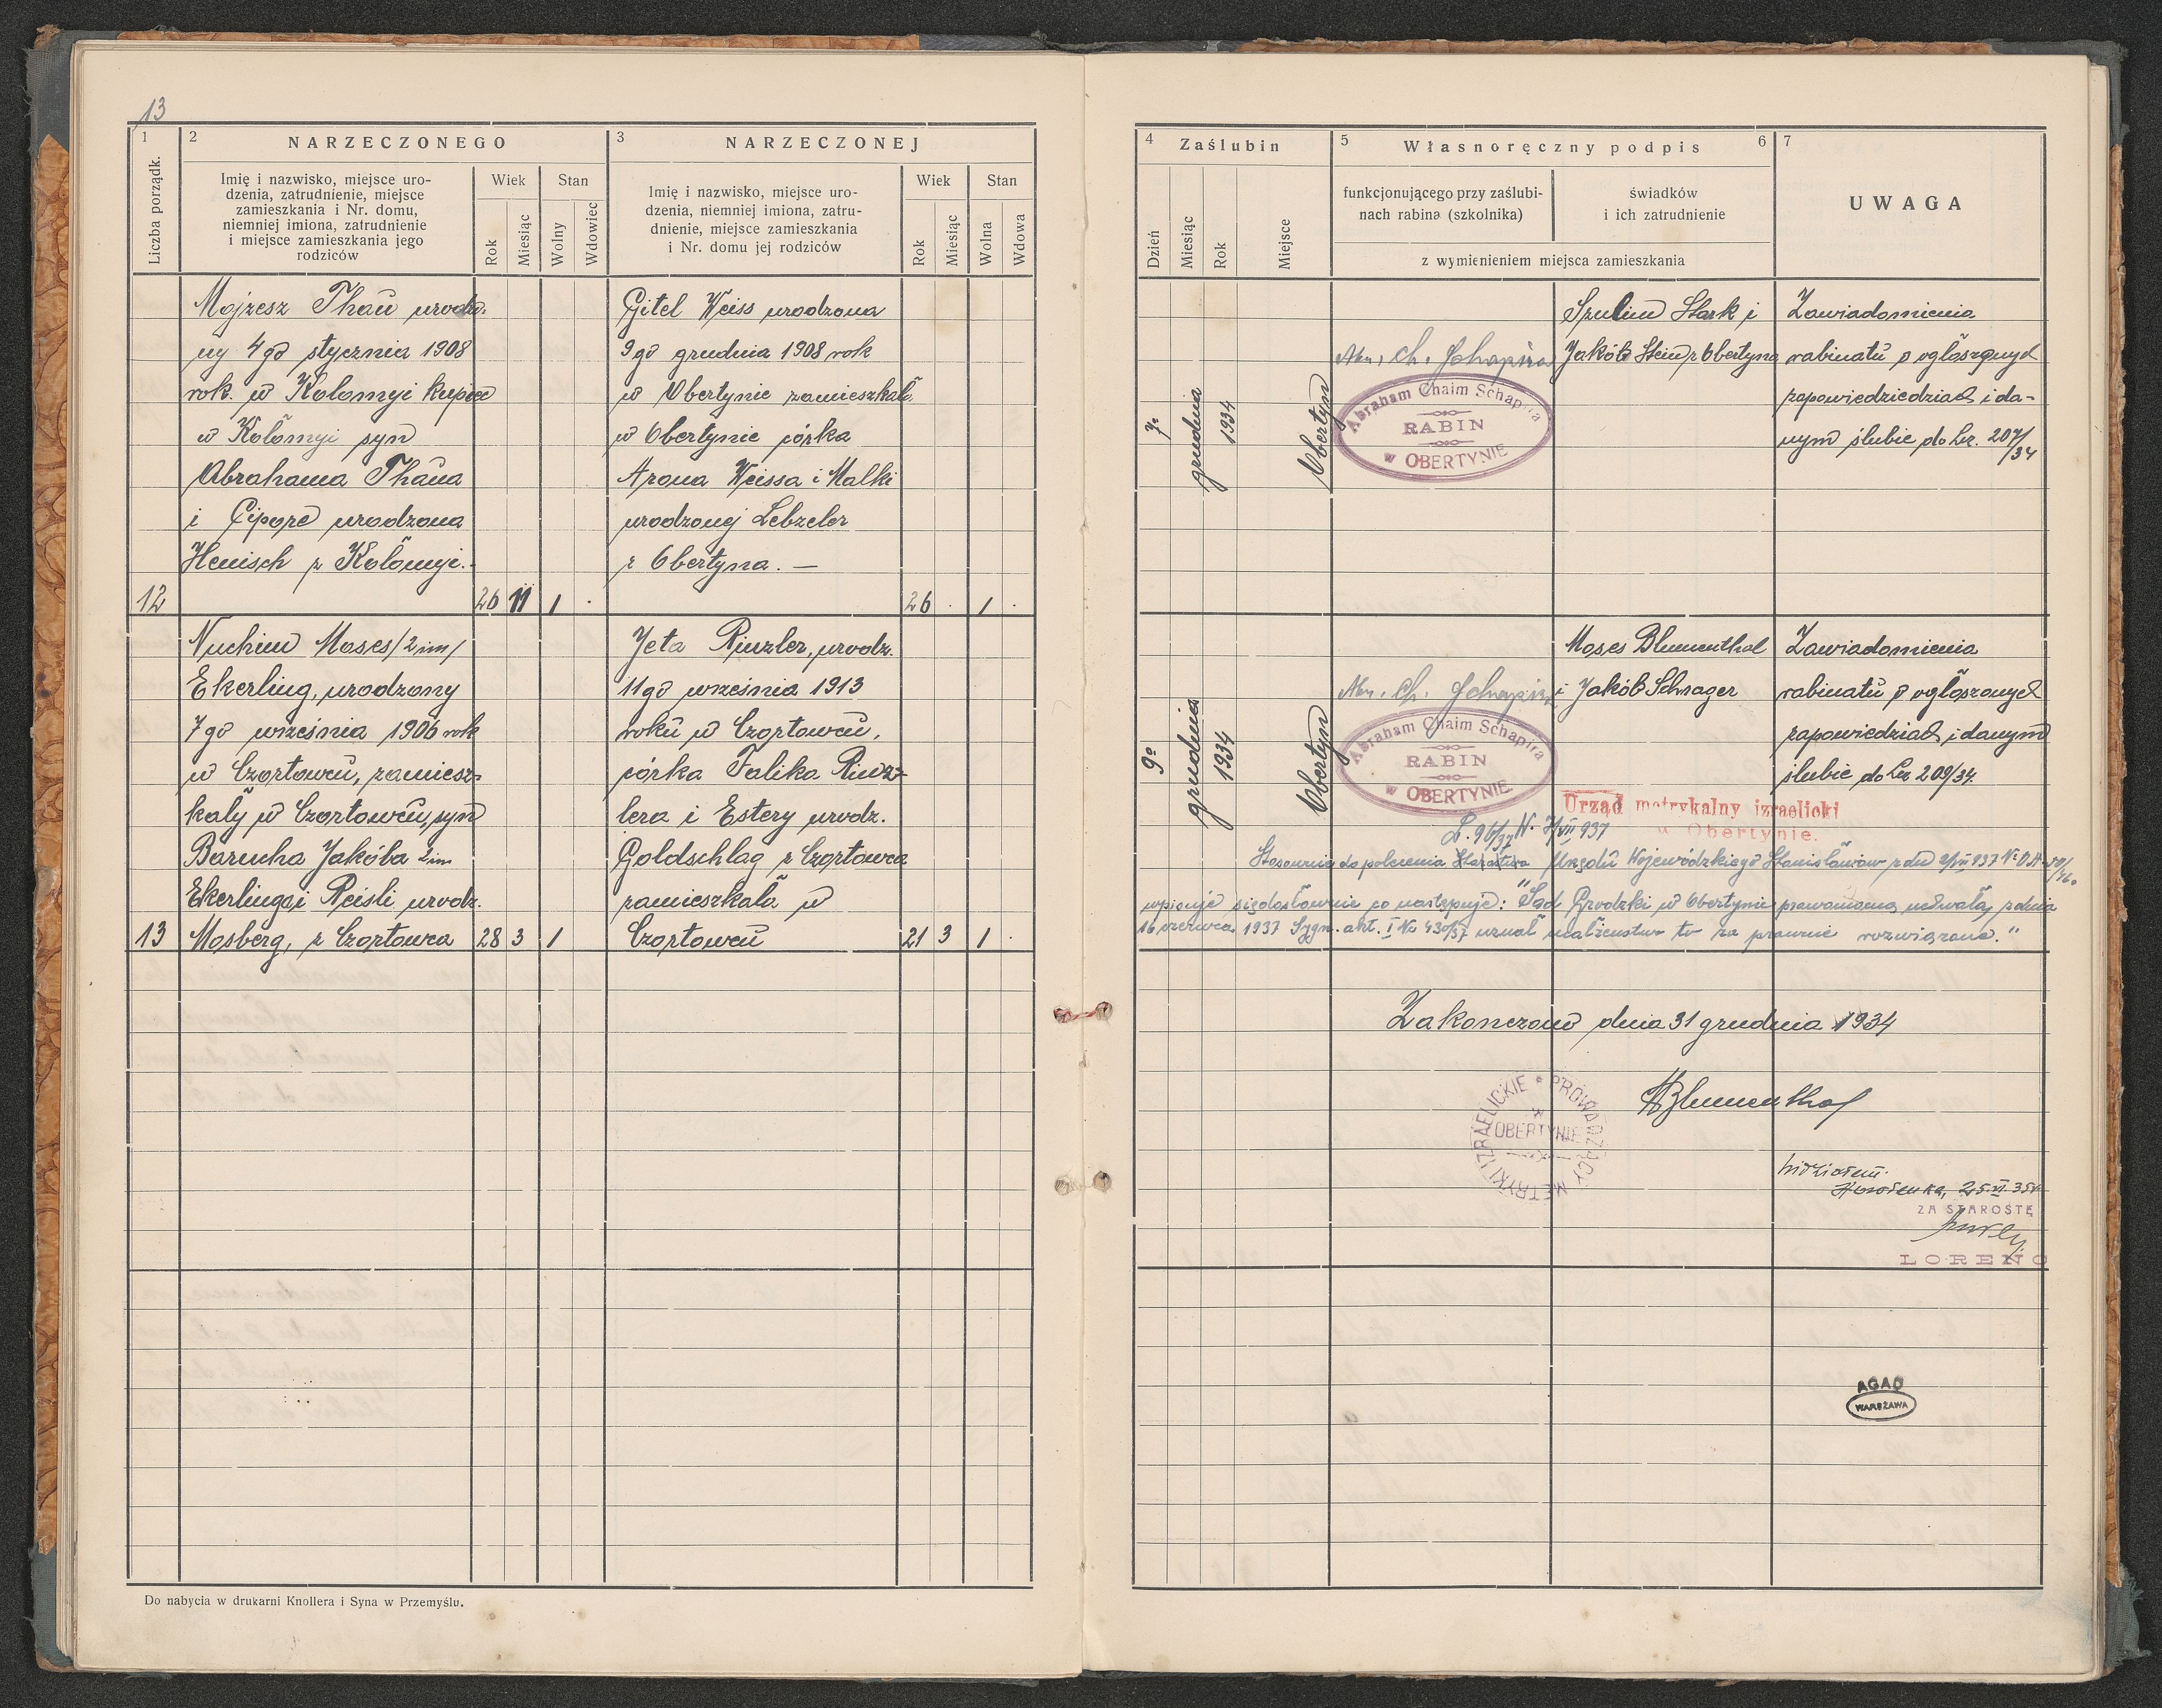 13
1
2
NARZECZONEGO
3
NARZECZONEJ
Liczba porządk.
Imię i nazwisko, miejsce uro-
dzenia, zatrudnienie, miejsce
zamieszkania i Nr. domu,
niemniej imiona, zatrudnienie
i miejsce zamieszkania jego
rodziców
Wiek
Stan
Rok
Miesiąc
Wolny
Wdowiec
Imię i nazwisko, miejsce uro-
dzenia, niemniej imiona, zatru-
dnienie, miejsce zamieszkania
i Nr. domu jej rodziców
Wiek
Stan
Rok
Miesiąc
Wolna
Wdowa
Mojzesz Thau urodzo-
ny 4go stycznia 1908
rok. w Kołomyi kupiec
w Kołomyi syn
Abrahama Thaua
i Cipore urodzona
Henisch z Kołomyi.
12
26 11 1 .
Gitel Weiss urodzona
9go grudnia 1908 rok
w Obertynie zamieszkała
w Obertynie córka
Arona Weissa i Malki
urodzonej Lebzeler
z Obertyna. —
26 . 1 .
Nuchim Moses /2 im/
Ekerling, urodzony
7go września 1906 rok
w Czortowcu, zamiesz-
kały w Czortowcu, syn
Barucha Jakóba 2 im
Ekerlinga i Reisli urodz.
13 Mosberg, z Czortowca 28 3 1
Jeta Rinzler, urodz.
11go września 1913
roku w Czortowcu,
córka Falika Rinz-
lera i Estery urodz.
Goldschlag z Czortowca
zamieszkała w
Czortowcu 21 3 1 .
Do nabycia w drukarni Knollera i Syna w Przemyślu.
4
Zaślubin
5
Własnoręczny podpis
6
7
Dzień
Miesiąc
Rok
Miejsce
funkcjonującego przy zaślubi-
nach rabina (szkolnika)
świadków
i ich zatrudnienie
z wymienieniem miejsca zamieszkania
UWAGA
7.
grudnia
1934
Obertyn
Abr. Ch. Schapira
Abraham Chaim Schapira
RABIN
w OBERTYNIE
Szulim Stark i
Jakób Stein z Obertyna
Zawiadomienia
rabinatu o ogłoszonych
zapowiedziedziach i da-
nym ślubie do Lr. 207/34
9o
grudnia
1934
Obertyn
Abr. Ch. Schapira
Abraham Chaim Schapira
RABIN
w OBERTYNIE
Moses Blumenthal
i Jakób Schrager
Zawiadomienia
rabinatu o ogłoszonych
zapowiedziach i danym
ślubie do Lr 209/34
Urząd metrykalny izraelicki
w Obertynie.
L. 96/37 7/VII 937
Stosownie do polecenia Starostwa Urzędu Wojewódzkiego Stanisławów z dn 2/VII 937
wpisuje się dosłownie co następuje: "Sąd Grodzki w Obertynie prawomocną uchwałą z dnia
16 czerwca 1937 Sygn. akt. I No 430/37 uznał małżeństwo to za prawnie rozwiązane."
Zakonczono dnia 31 grudnia 1934
Blumenthal
PROWADZĄCY METRYKI IZRAELICKIE
OBERTYNIE
Widziałem.
Horodenka, 25.VI.35r
ZA STAROSTĘ
LORENC
AGAD
WARSZAWA